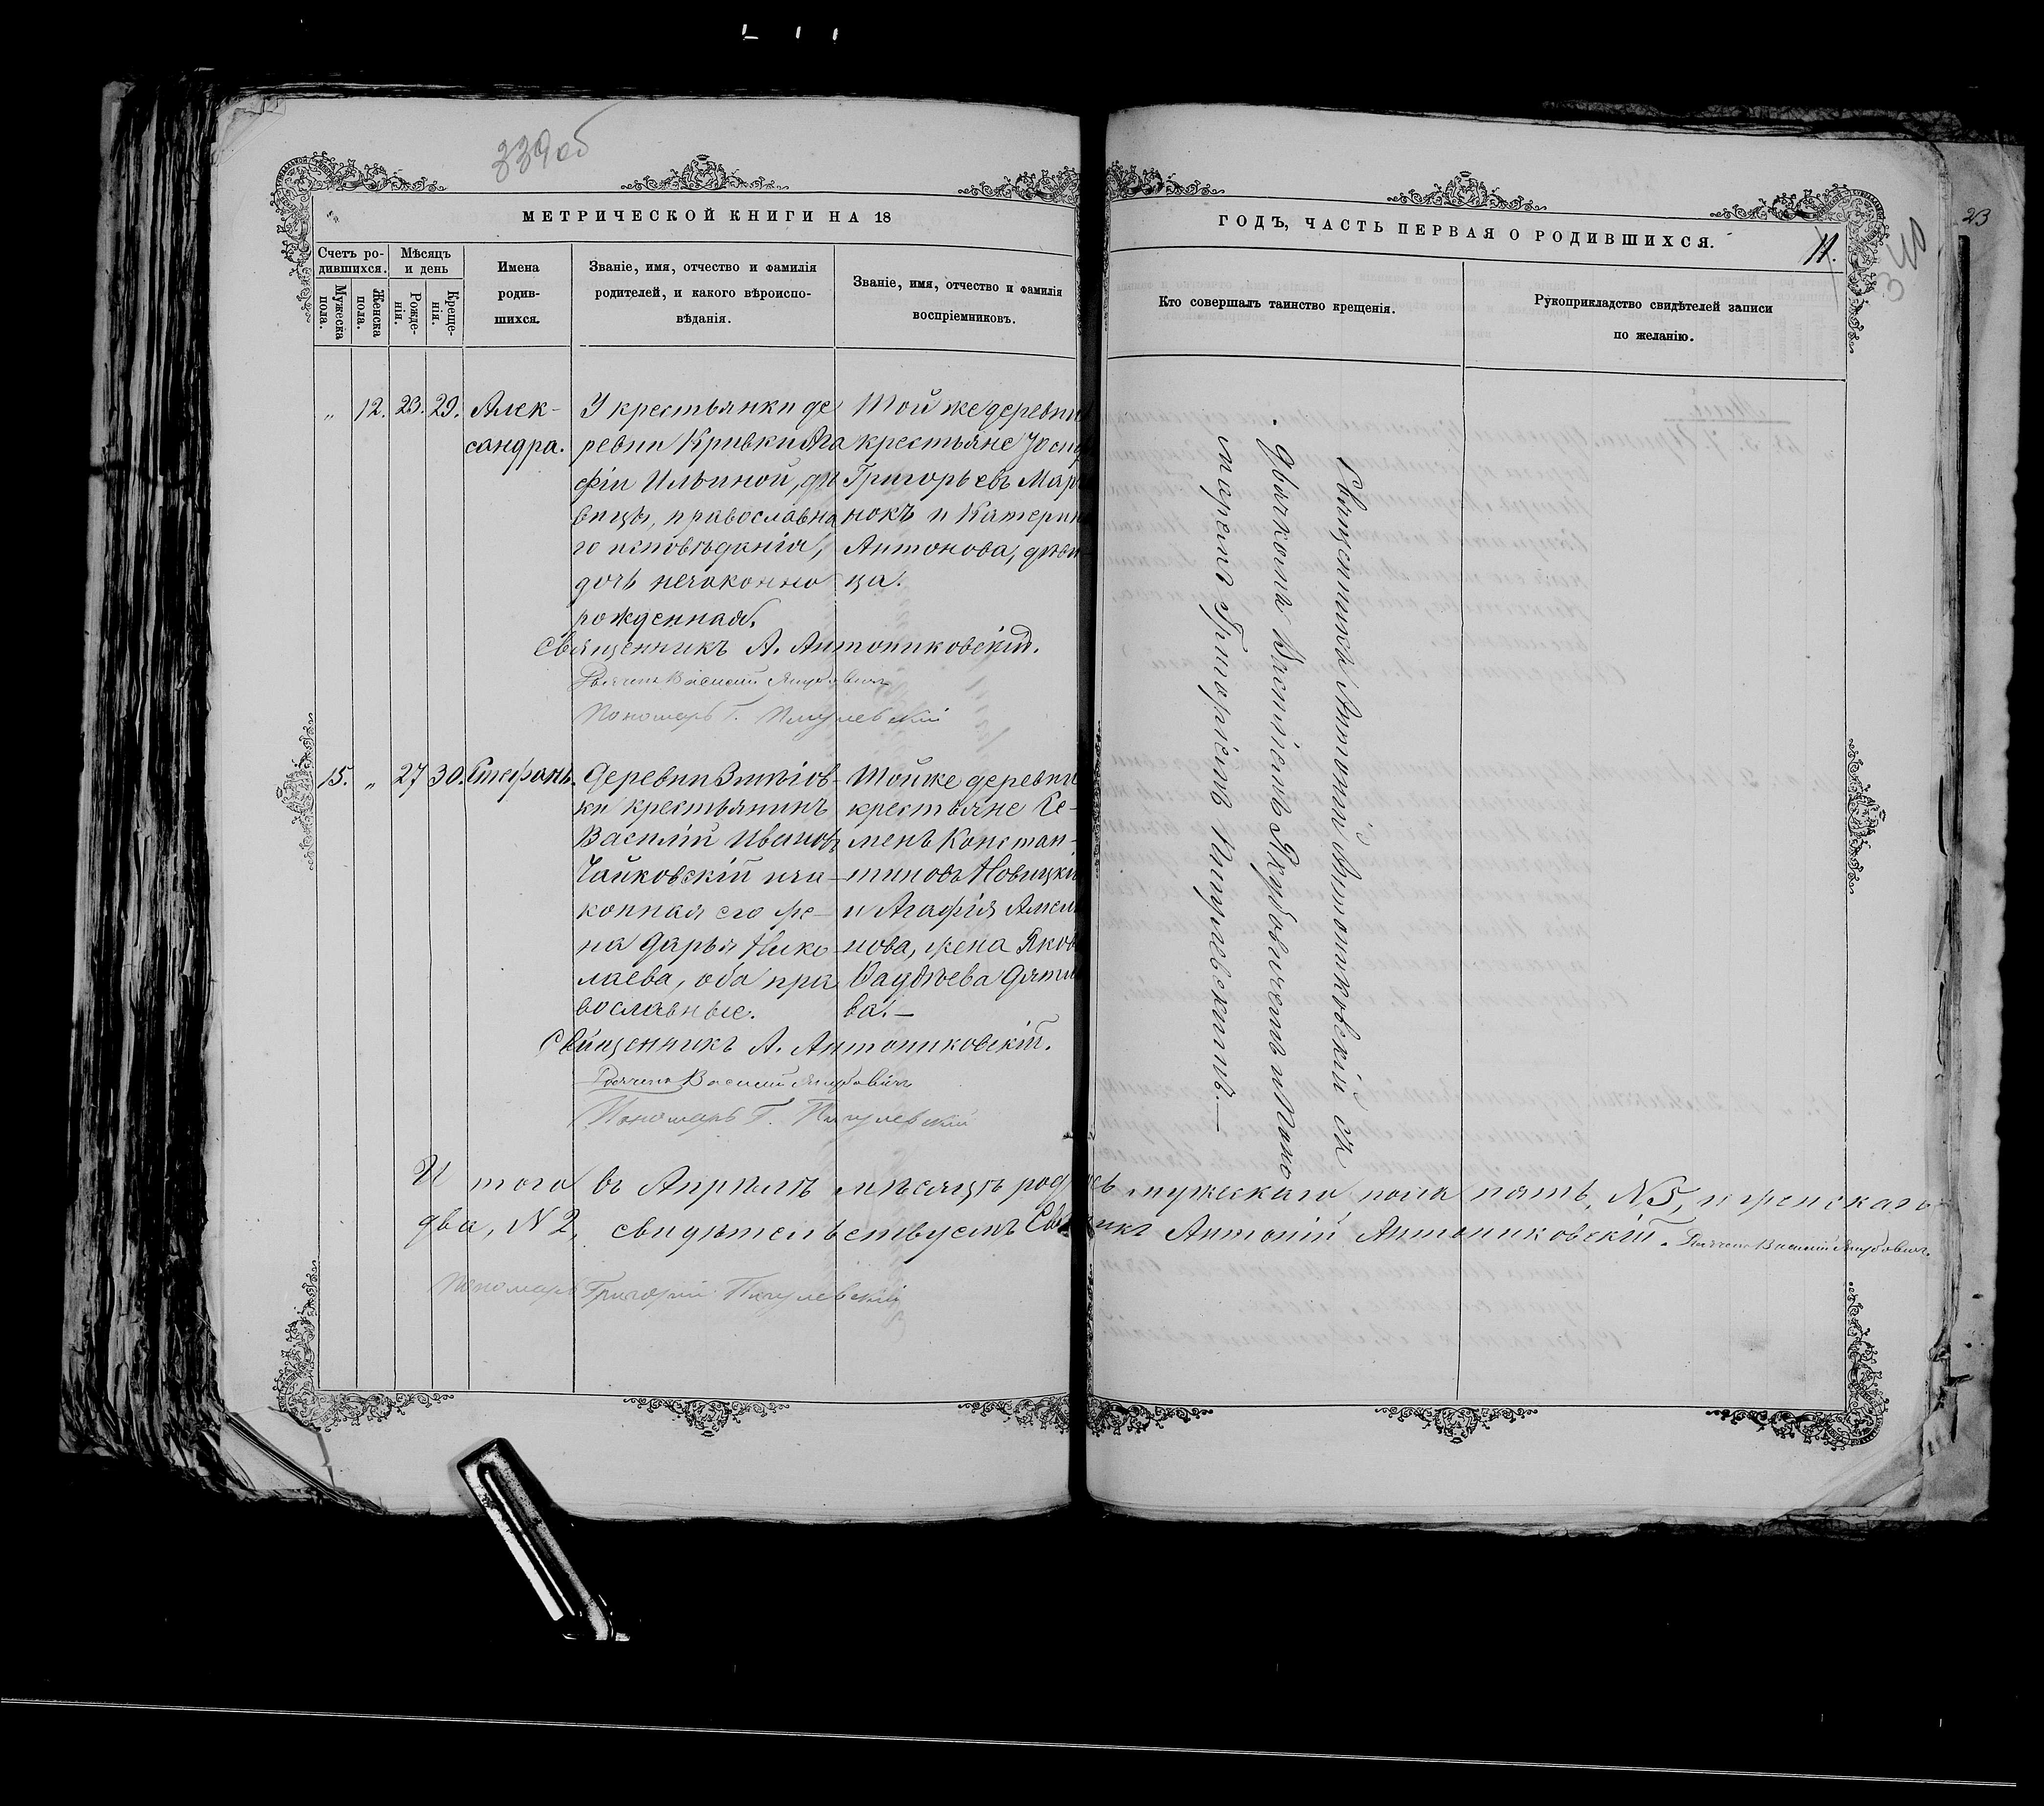 339 об
МЕТРИЧЕСКОЙ КНИГИ НА 18
ГОДЪ, ЧАСТЬ ПЕРВАЯ О РОДИВШИХСЯ.
11.
340
23
Счетъ ро-
дившихся.
Мужеска
пола.
Женска
пола.
Мѣсяцъ
и день
Рожде-
нія.
Креще-
нія.
Имена
родив-
шихся.
Званіе, имя, отчество и фамилія
родителей, и какого вѣроиспо-
вѣданія.
Званіе, имя, отчество и фамилія
воспріемниковъ.
Кто совершалъ таинство крещенія.
Рукоприкладство свидѣтелей записи
по желанію.
„ 12. 23. 29. Алек-
сандра.
У крестьянки де
ревни Кривки Ага
фіи Ильиной, дѣ
вицы, православна
го исповѣданія,
дочь незаконно
рожденная.
Той же деревни
крестьяне
Григорьевъ Мар
нокъ и Катерин
Антонова, дѣви
ца.
Священникъ А. Антониковскій.
Дьячекъ Василій Якубовичъ
Пономарь Г. Пигулевскій
15. „ 27 30. Стефанъ.
Деревни
ки крестьянинъ
Василій Ивановъ
Чайковскій и за
конная его же
на Дарья Нико
лаева, оба пра
вославные.
Той же деревни
крестьяне Се-
менъ Констан-
тиновъ Новицкі
и Агафія
нова, жена Яков
ва.—
Священникъ А. Антониковскій.
Дьячекъ Василій Якубовичъ
Пономарь Г. Пигулевскій
Священникъ Антоній Антониковскій съ
дьячкомъ Василіемъ Якубовичемъ и поно
маремъ Григоріемъ Пигулевскимъ.—
И того въ Апрѣлѣ мѣсяцѣ род сь мужескаго пола пять, N 5, и женскаго
два, N 2, свидѣтельствуемъ Св икъ Антоній Антониковскій. Дьячекъ Василій Якубовичъ.
Пономарь Григорій Пигулевскій